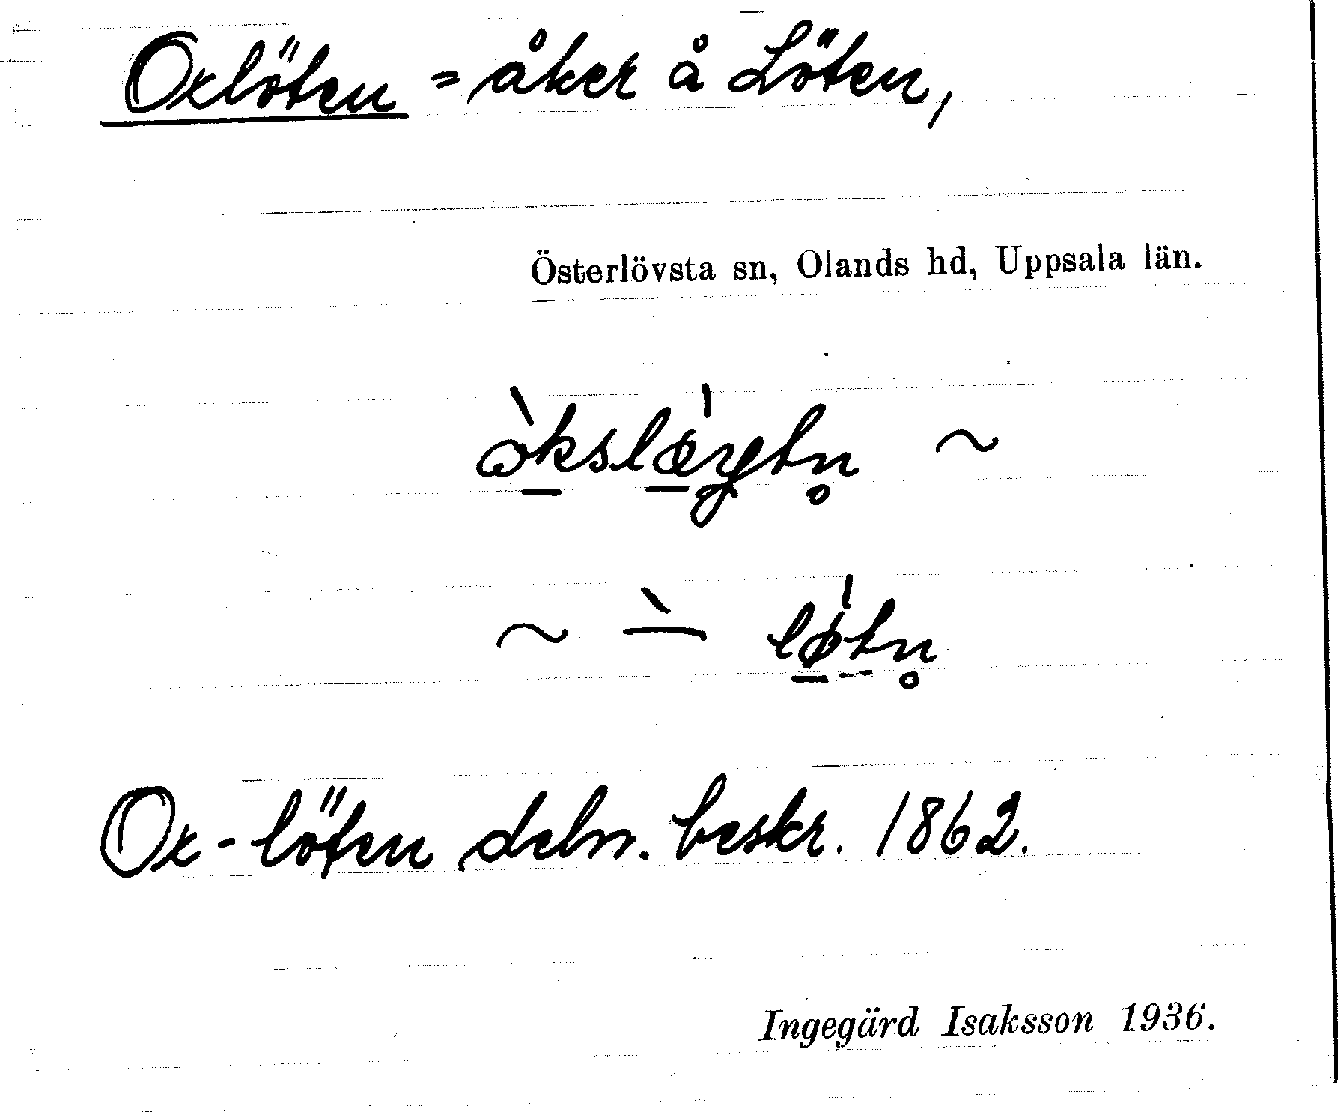 Oxlöten = åker å Löten,
Österlövsta sn, Olands hd, Uppsala län.
ò̱kslæ̱̀ytn̥ ~
~ –̀ lø̱̀tn̥
Ox-löten deln. beskr. 1862.
Ingegärd Isaksson 1936.